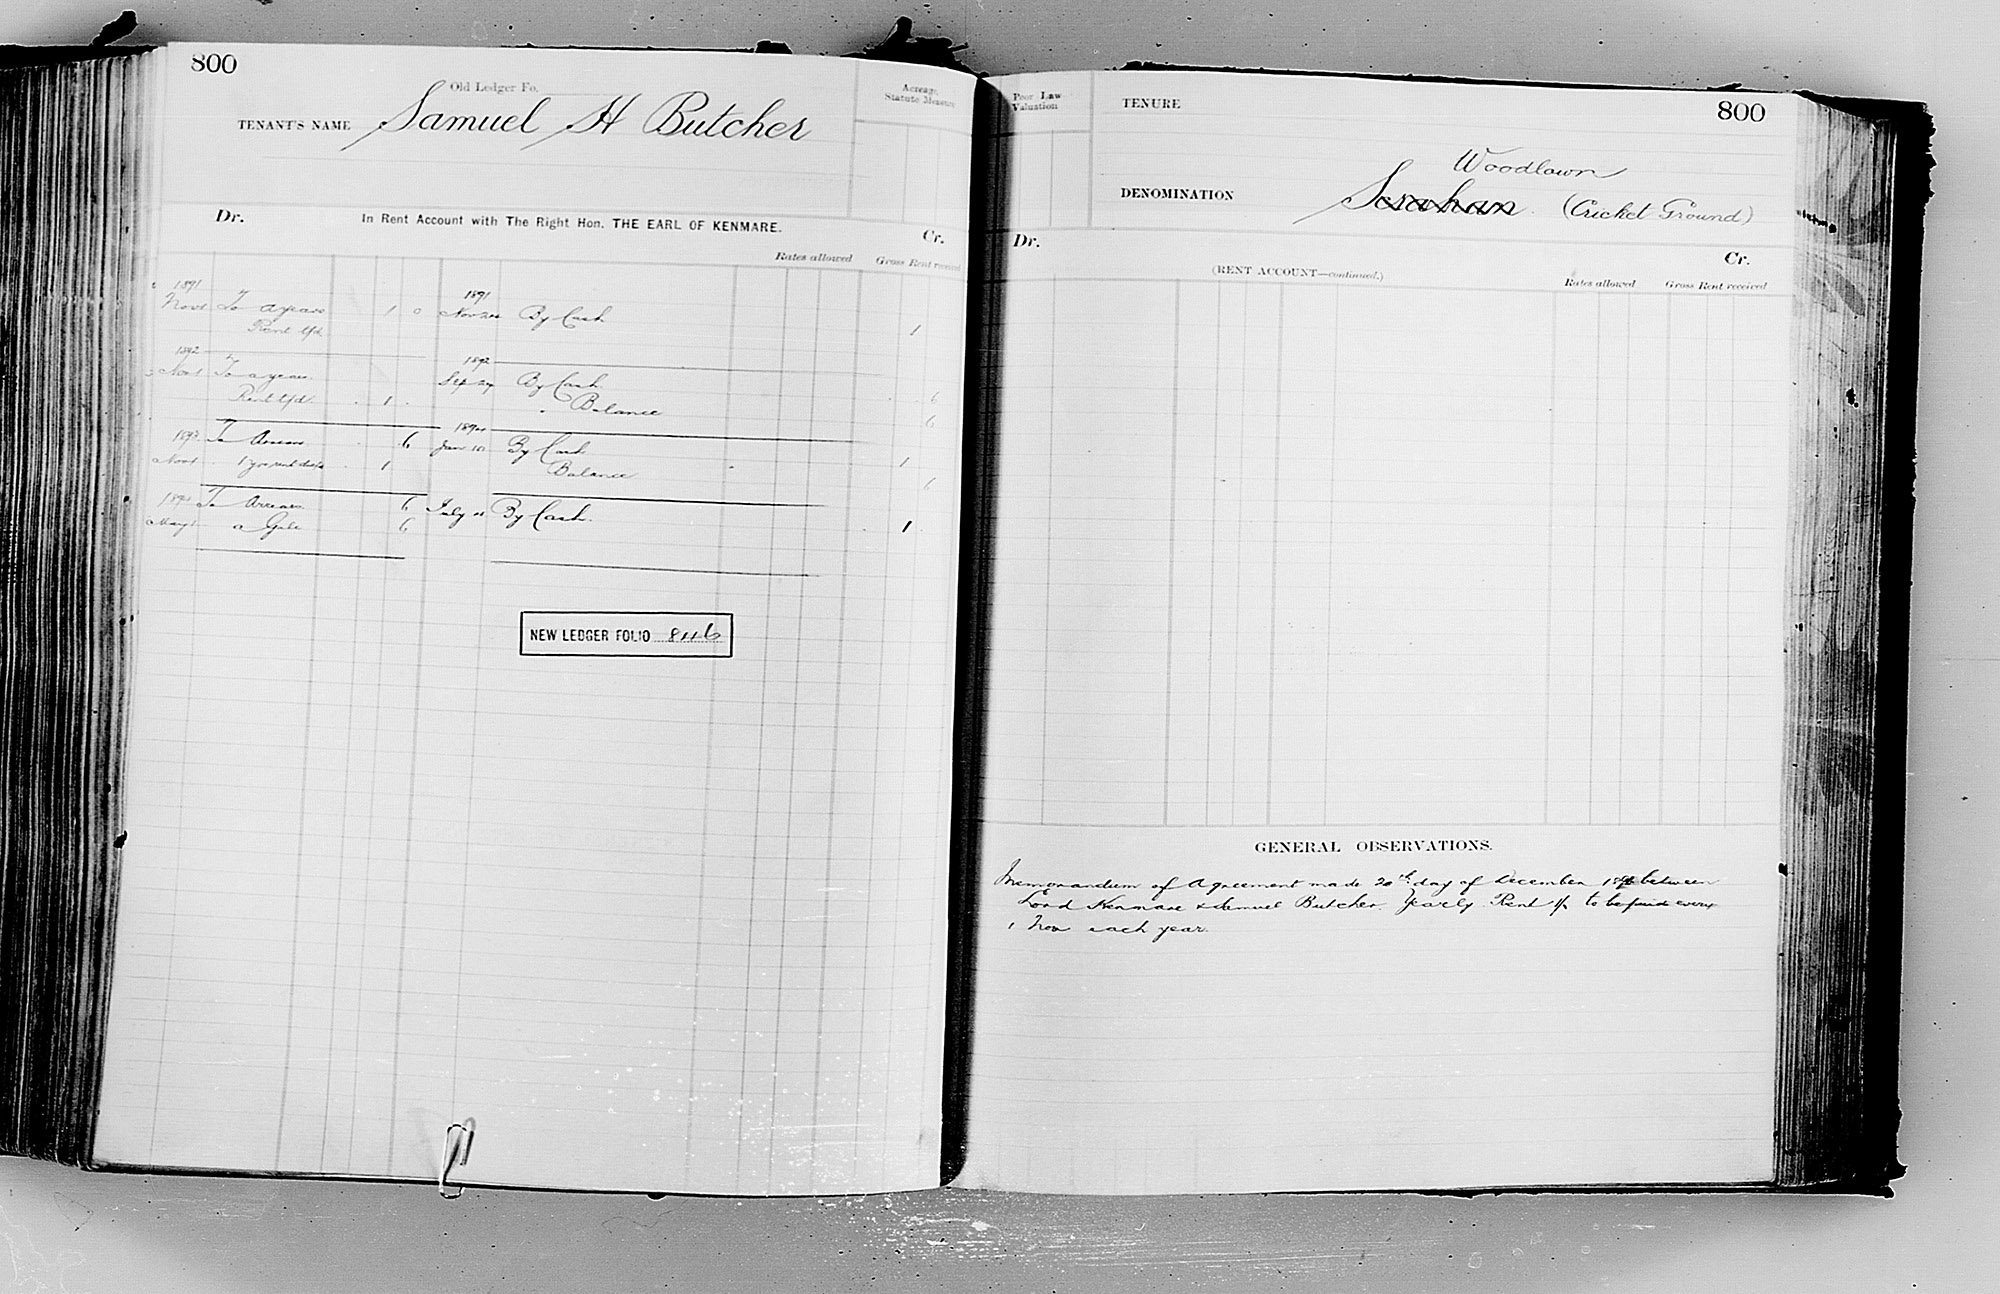 800
Old Ledger Fo.
TENANT'S NAME Samuel H Butcher
Acreage
Statute Measure
Dr. In Rent Account with The Right Hon. THE EARL OF KENMARE. Cr.
Rates allowed Gross Rent received
1891 1891
Nov 1 To a years 1 0 Nov 24 By Cash 1
Rent
1892 1892
Nov 1 To a years Sep 24 By Cash 6
Rent 1 Balance 6
1893
To Arrears 6 Jan 10 By Cash 1
Nov 1 1 yrs rent 1 Balance 6
To Arrears 6 July 11 By Cash. 1
May 1 a Gale 6
NEW LEDGER FOLIO 846
Poor Law
Valuation
TENURE
800
Woodlawn
DENOMINATION Scrahan (Cricket Ground)
Dr. Cr.
(RENT ACCOUNT—continued.)
Rates allowed Gross Rent received
GENERAL OBSERVATIONS.
Memorandum of Agreement made 20th day of December between
Lord Kenmare & Samuel Butcher. Yearly Rent 1/- to be paid every
1 Nov each year.